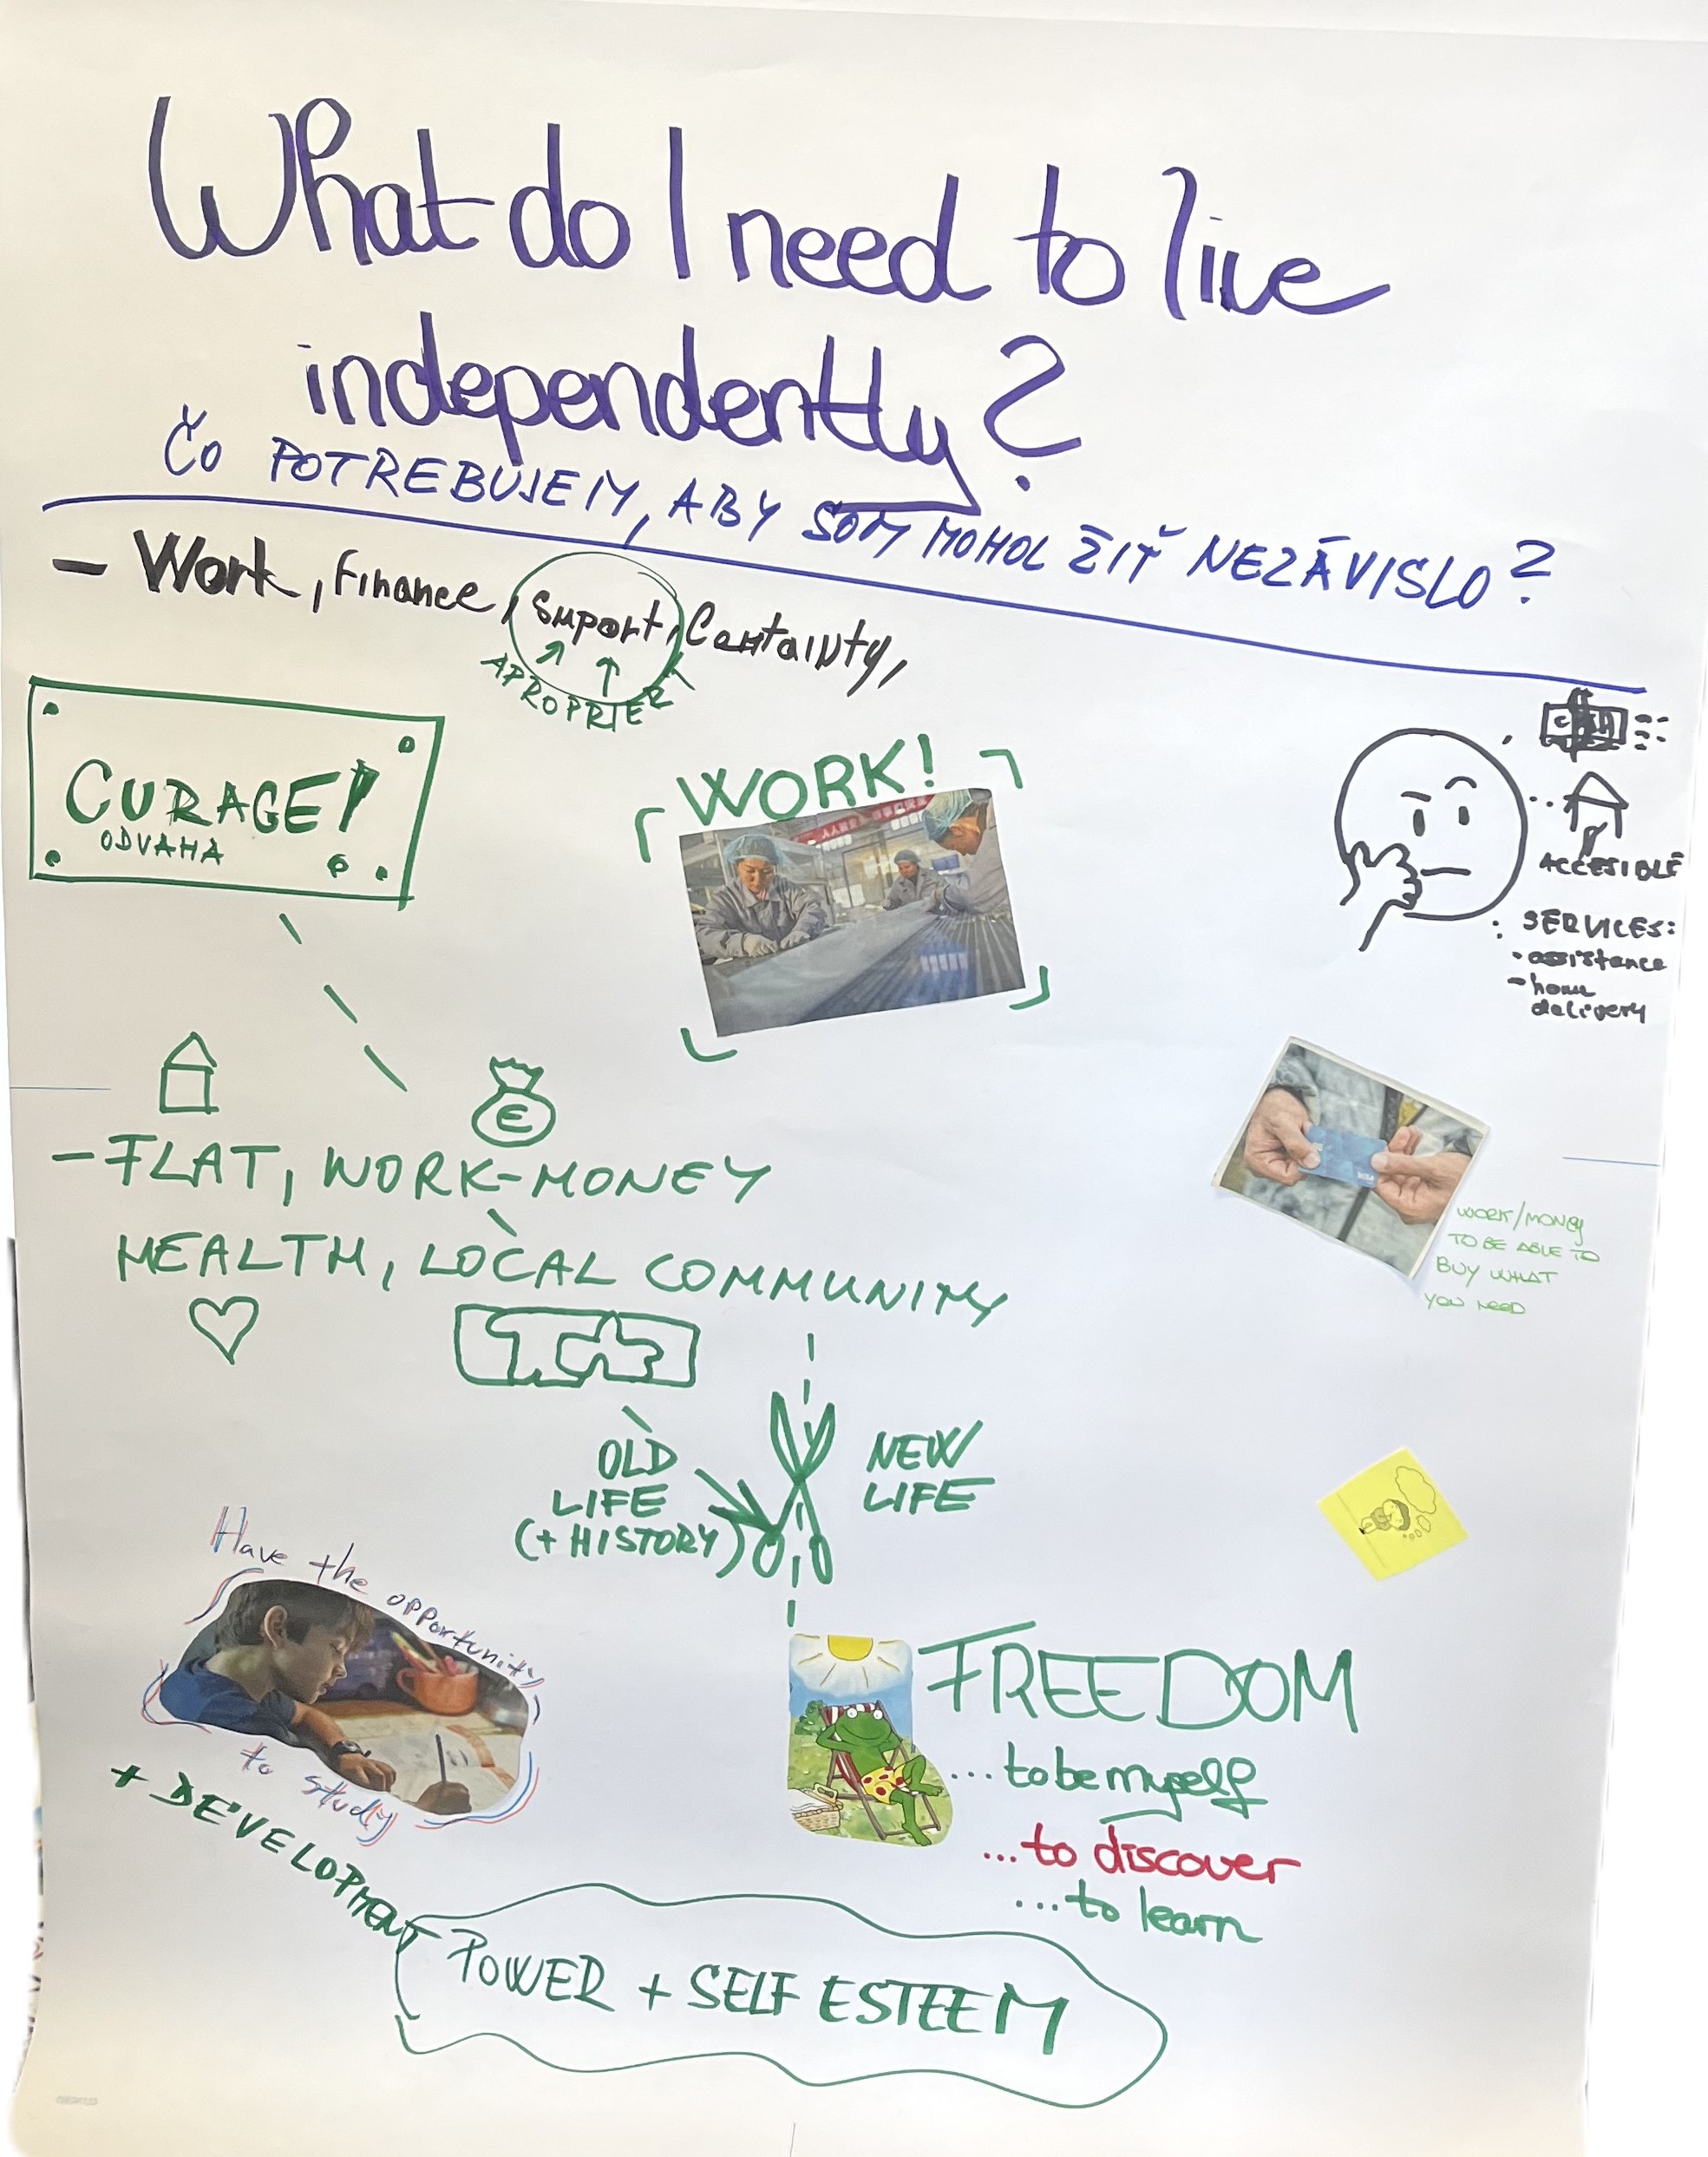 What do I need to live
independently?
ČO POTREBUJEM, ABY SOM MOHOL ŽIŤ NEZÁVISLO?
- Work, Finance, Suport, Certainty,
APROPRIE
CURAGE!
ODVAHA
WORK!
ACCESIBLE
SERVICES:
• assistance
- home
delivery
- FLAT, WORK-MONEY
€
HEALTH, LOCAL COMMUNITY
WORK/MONEY
TO BE ABLE TO
BUY WHAT
YOU NEED
OLD
LIFE
(+ HISTORY)
NEW
LIFE
Have the opportunity
to study
+ DEVELOPMENT
FREEDOM
... to be myself
... to discover
... to learn
POWER + SELF ESTEEM